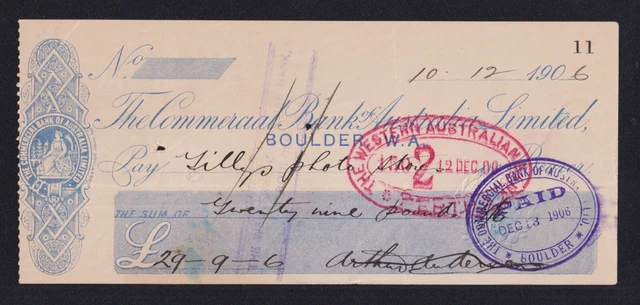 11
No
10. 12 1906
The Commercial Bank of Australia Limited,
BOULDER, W.A.
Pay
THE WESTERN AUSTRALIAN
2
12 DEC 06
THE SUM OF Twenty nine pounds 9/6
£29-9-6
THE COMMERCIAL BANK OF AUSTRALIA LTD.
PAID
DEC 13 1906
BOULDER
THE COMMERCIAL BANK OF AUSTRALIA LIMITED